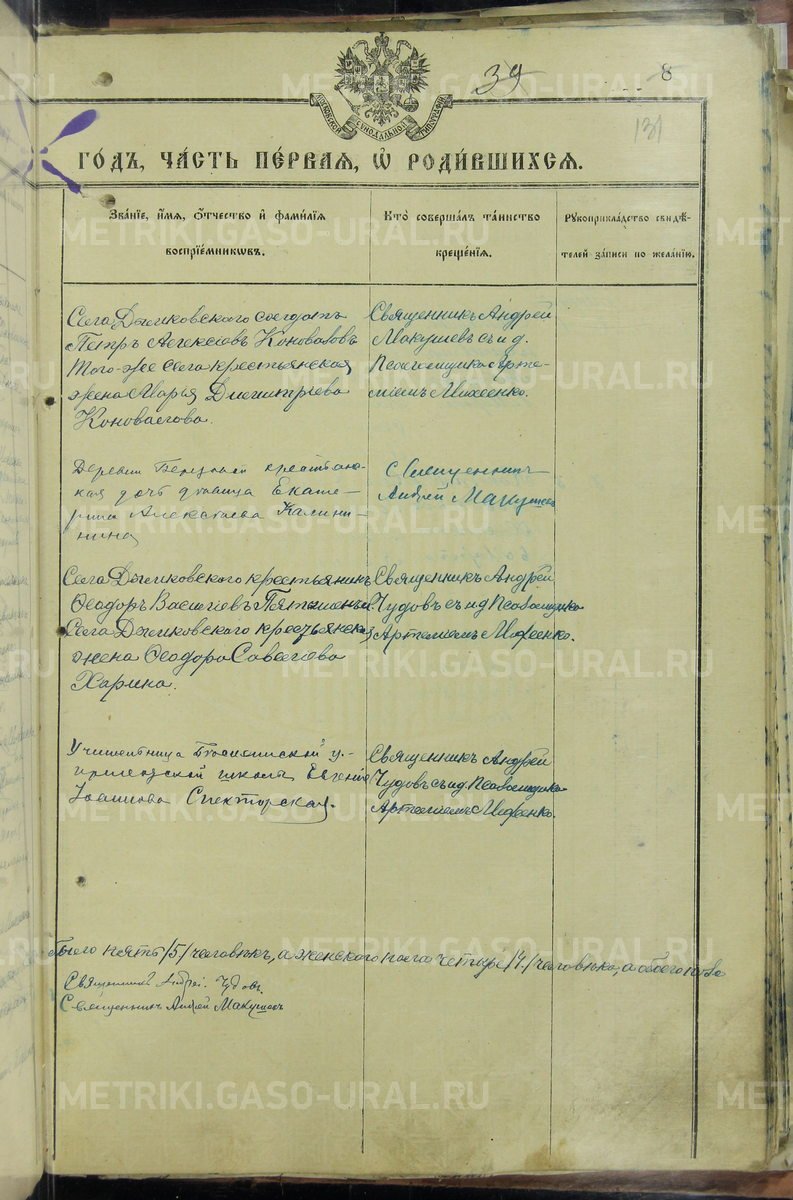 39
8
131
МОСКОВСКОЙ СѴНОДАЛЬНОЙ ТИПОГРАФІИ
ГО́ДЪ, ЧА́СТЬ ПЕ́РВАЯ, Ѡ҆ РОДИ́ВШИХСЯ.
Зва́нїе, и҆́мѧ, ѻ҆́тчество и҆ фами́лїѧ
воспрїе́мникѡвъ.
Кто̀ соверша́лъ та́инство
креще́нїѧ.
Рꙋкоприкла́дство свидѣ́-
телей за́писи по жела́нїю.
Села Дымковского солдатъ
Петръ Алексѣевъ Коноваловъ
Того-же села крестьянская
жена Марья Димитріева
Коновалова.
Священникъ Андрей
Макушевъ съ и д.
Псаломщика Арте-
міемъ Михеенко.
Деревни крестьянс-
кая дочь дѣвица Екате-
рина Алексѣева Калини-
нина
Священникъ
Андрей Макушевъ
Села Дымковского крестьянинъ
Ѳеодоръ Васильевъ
Села Дымковского крестьянска
жена Ѳеодора Савелова
Харина.
Священникъ Андрей
Чудовъ съ и д Псаломщика
Артеміемъ Михеенко.
Учительница
школы Евгенія
Іоаннова Спекторская.
Священникъ Андрей
Чудовъ съ и д. Псаломщика
Артеміемъ Михеенко.
пять /5/ человѣкъ, а женского пола четыре /4/ человѣка, а обоего пола
Священникъ Андрей Чудовъ.
Священникъ Андрей Макушевъ
METRIKI.GASO-URAL.RU